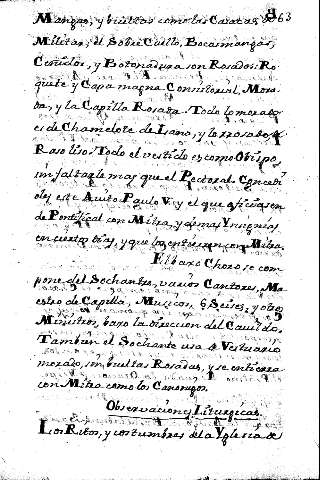 Mangas, y bueltas como las Casacas 63
Militares; el Sobre Cuello, Bocasmangas,
Ceñidos, y Botonadura son Rosados. Ro-
quete y Capa magna Consistorial, Mora-
da, y la Capilla Rosada. Todo lo morado
es de Chamelote de Lana, y lo rosado de
Raso liso. Todo el vestido es como Obispo,
sin faltarle mas que el Pectoral. Concedi-
oles este Avito Paulo V. y el que oficiasen
de Pontifical con Mitra, y demas Ynsignias
en ciertos dias, y que los entierran con Mitra.
El baxo Choro se com-
pone del Sochantre, varios Cantores, Ma-
estro de Capilla, Musicos, 6 Seises, y otros
Ministros, baxo la direccion del Cavildo.
Tambien el Sochantre usa de Vestuario
morado, sin bueltas Rosadas, y se entierra
con Mitra como los Canonigos.
Observaciones Liturgicas.
Los Ritos, y costumbres de la Yglesia de